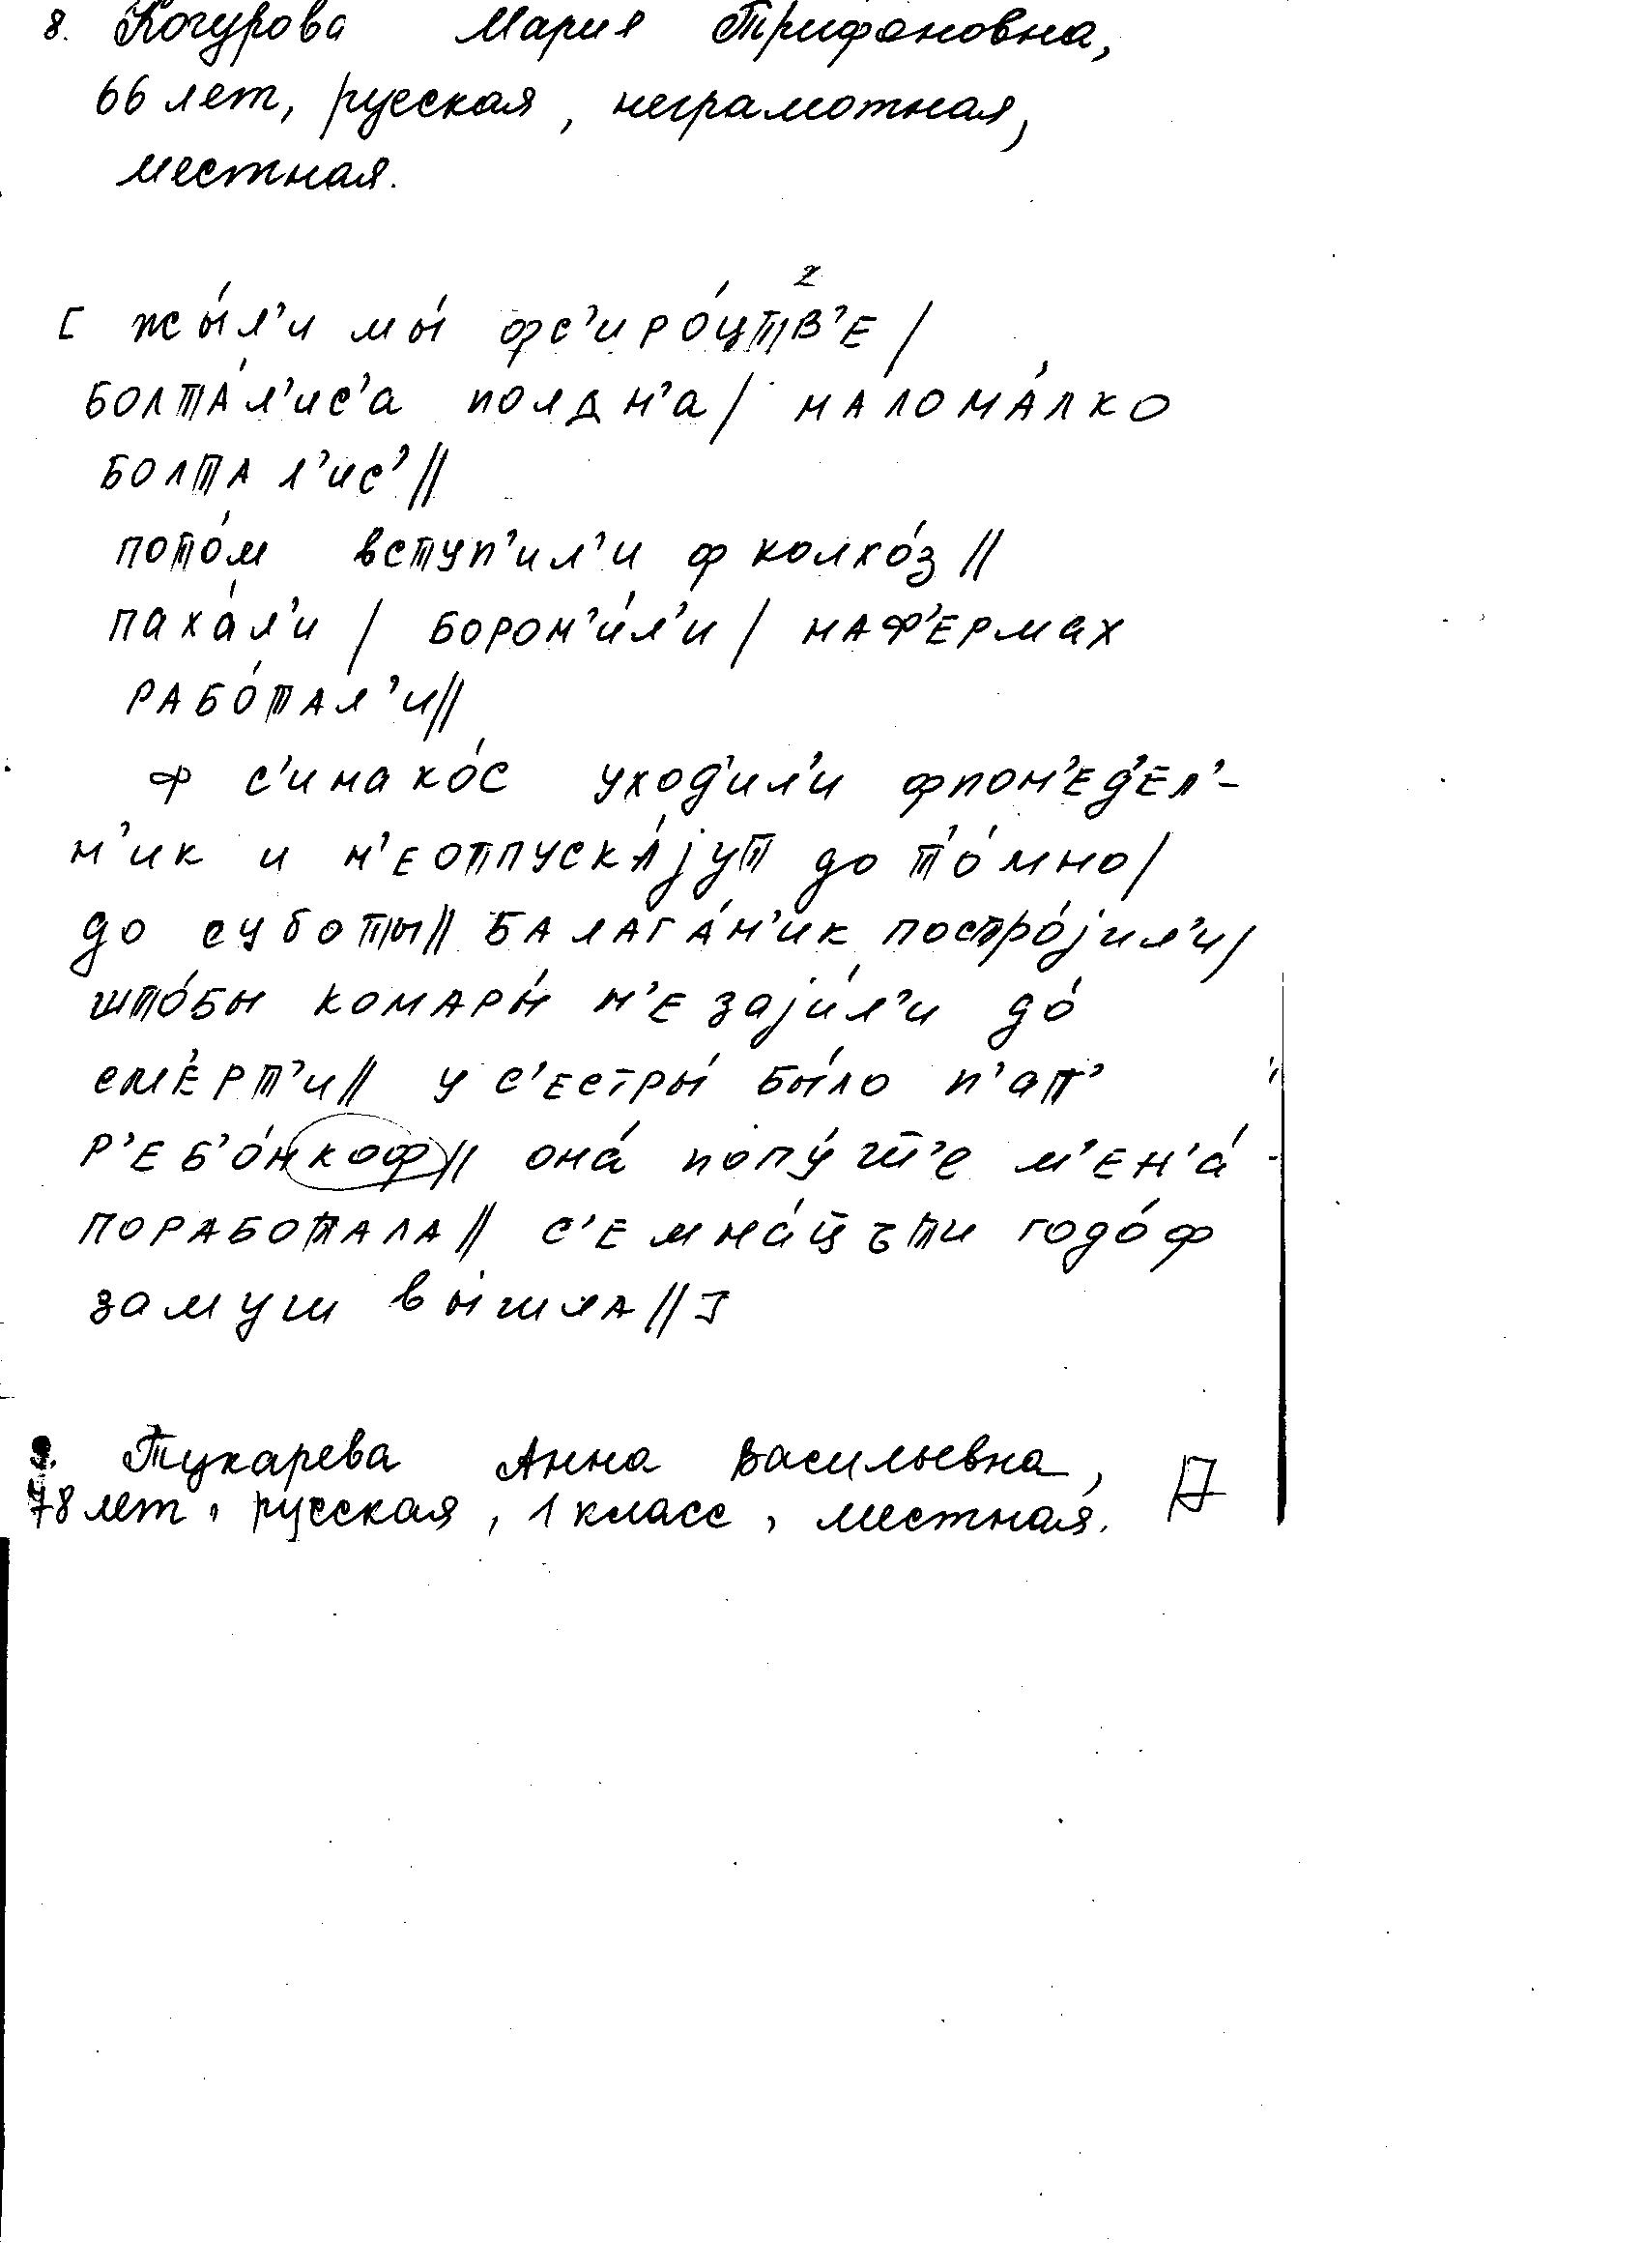 8. Когурова Мария Трифоновна,
66 лет, русская, неграмотная,
местная.
[ жы́л'и мы́ фс'иро́цтв'е /
болта́л'ис'а полдн'а / малома́лко
болтал'ис' //
пото́м вступ'ил'и ф колхо́з //
паха́л'и / борон'и́л'и / наф'ермах
рабо́тал'и //
ф с'инако́с уход'ил'и фпон'ед'ел'-
н'ик и н'еотпуска́јут до т'о́мно /
до суботы // балага́н'ик постро́јил'и /
што́бы комары́ н'е заји́л'и до́
сме́рт'и // у с'естры́ бы́ло п'ат'
р'еб'о́нкоф // она́ попу́шт'е м'ен'а́
поработала // с'емна́цъти годо́ф
замуш вы́шла // ]
9. Тукарева Анна Васильевна,
78 лет, русская, 1 класс, местная.